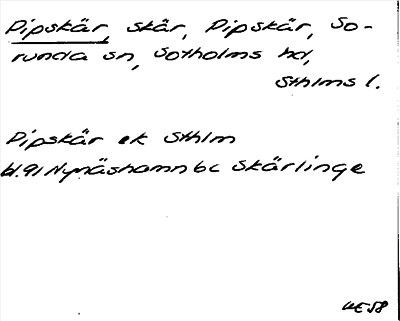 Pipskär, skär, Pipskär, So-
runda sn, Sotholms hd,
Sthlms l.
Pipskär ek Sthlm
bl. 91 Nynäshamn 6c Skärlinge
WE58